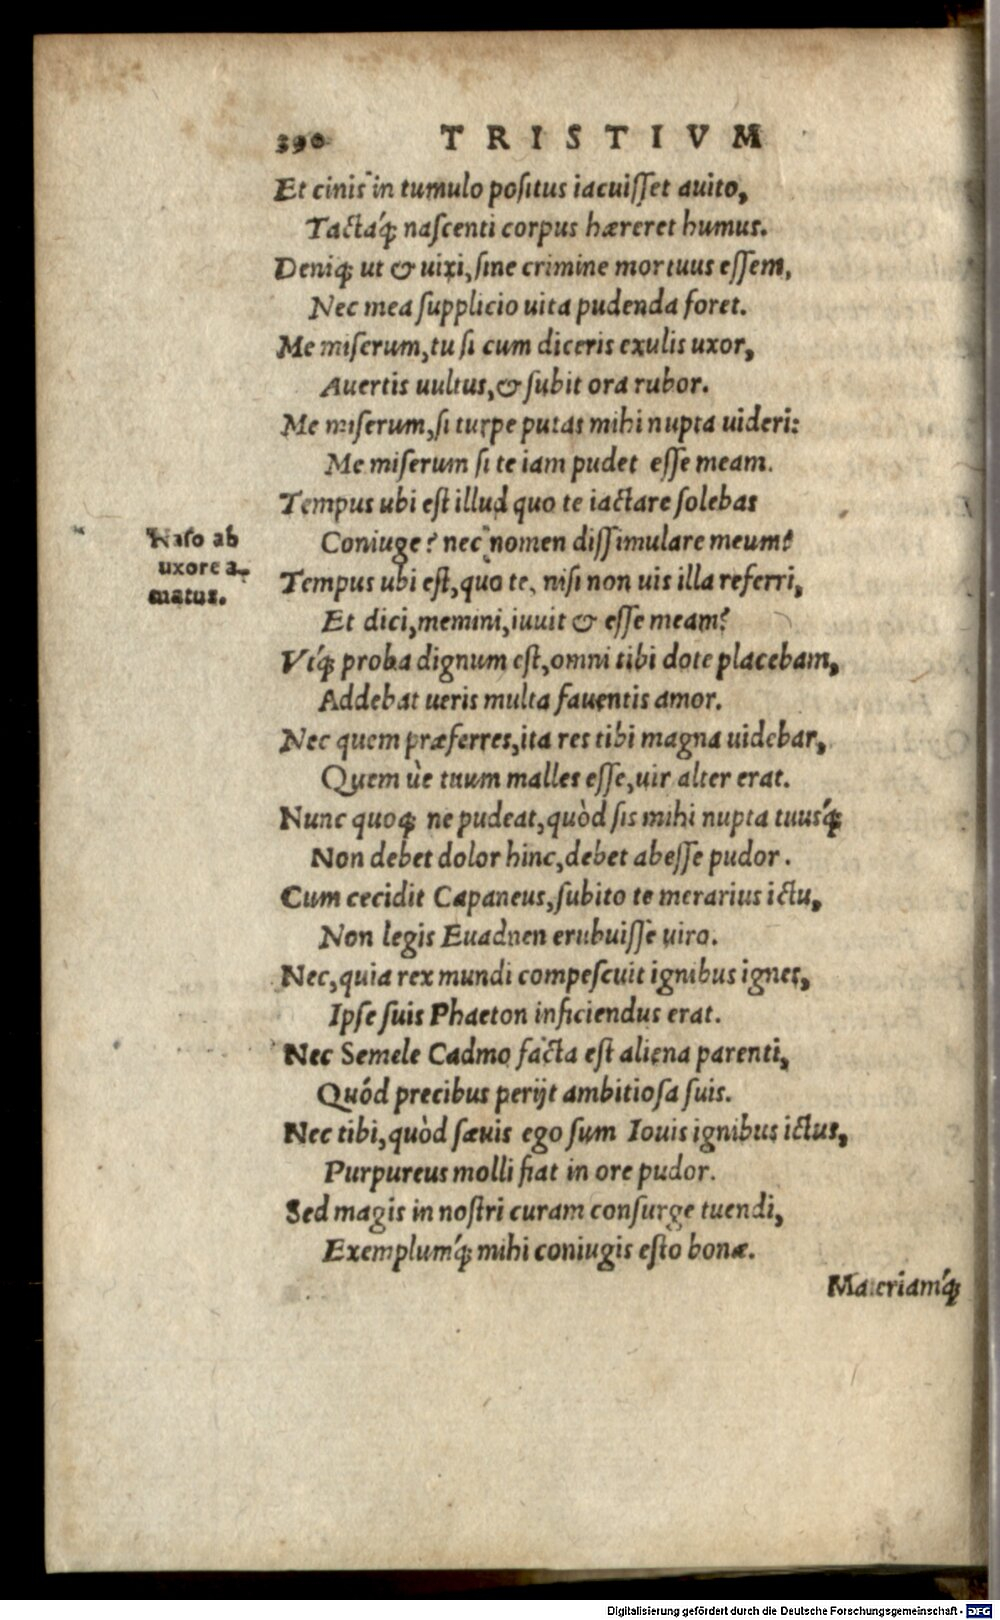 390 TRISTIVM
Et cinis in tumulo poſitus iacuiſſet auito,
Tactáq; naſcenti corpus hæreret humus.
Deniq; ut & uixi, ſine crimine mortuus eſſem,
Nec mea ſupplicio uita pudenda foret.
Me miſerum, tu ſi cum diceris exulis uxor,
Auertis uultus, & ſubit ora rubor.
Me miſerum, ſi turpe putas mihi nupta uideri:
Me miſerum ſi te iam pudet eſſe meam.
Tempus ubi eſt illud quo te iactare ſolebas
Coniuge? nec nomen diſſimulare meum?
Naſo ab
uxore a-
matus.
Tempus ubi eſt, quo te, niſi non uis illa referri,
Et dici, memini, iuuit & eſſe meam?
Vtq́; proba dignum eſt, omni tibi dote placebam,
Addebat ueris multa fauentis amor.
Nec quem præferres, ita res tibi magna uidebar,
Quem ùe tuum malles eſſe, uir alter erat.
Nunc quoq; ne pudeat, quòd ſis mihi nupta tuusq́;
Non debet dolor hinc, debet abeſſe pudor.
Cum cecidit Capaneus, ſubito te merarius ictu,
Non legis Euadnen erubuiſſe uiro.
Nec, quia rex mundi compeſcuit ignibus ignes,
Ipſe ſuis Phaeton inficiendus erat.
Nec Semele Cadmo facta eſt aliena parenti,
Quód precibus perijt ambitioſa ſuis.
Nec tibi, quòd ſæuis ego ſum Iouis ignibus ictus,
Purpureus molli fiat in ore pudor.
Sed magis in noſtri curam conſurge tuendi,
Exemplumq́; mihi coniugis eſto bonæ.
Materiamq́;
Digitalisierung gefördert durch die Deutsche Forschungsgemeinschaft - DFG